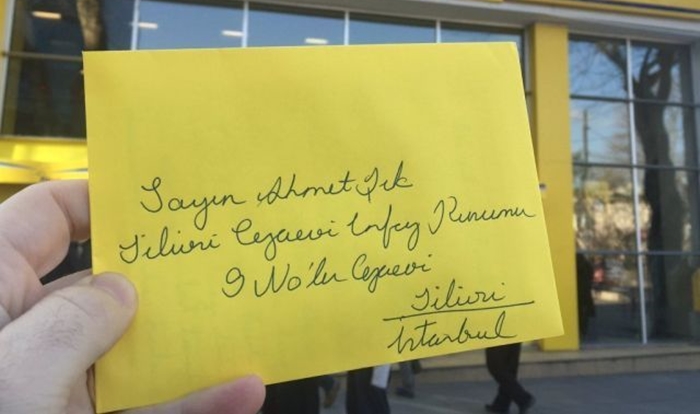 Sayın Ahmet Şık
Silivri Cezaevi İnfaz Kurumu
9 No'lu Cezaevi
Silivri
İstanbul